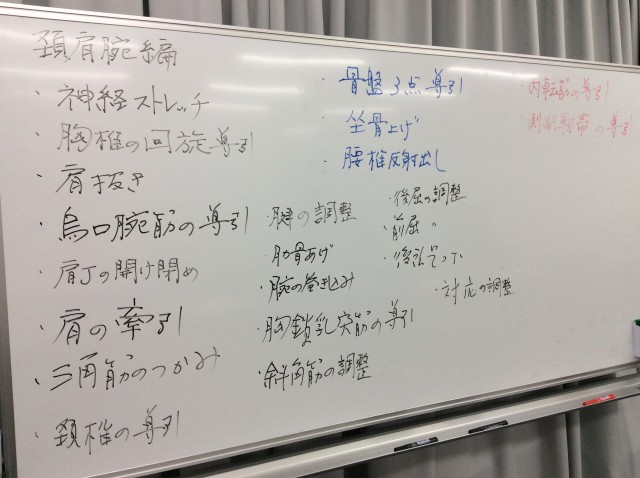 頚肩腕編
・神経ストレッチ
・胸椎の回旋導引
・肩抜き
・烏口腕筋の導引
・肩丁の開け閉め
・肩の牽引
・三角筋のつかみ
・頚椎の導引
・腱の調整
・肋骨あげ
・腕の巻き込み
・胸鎖乳突筋の導引
・斜角筋の調整
・骨盤3点導引
・坐骨上げ
・腰椎反射出し
・後屈の調整
・前屈 〃
・対応の調整
・内転筋の導引
の導引